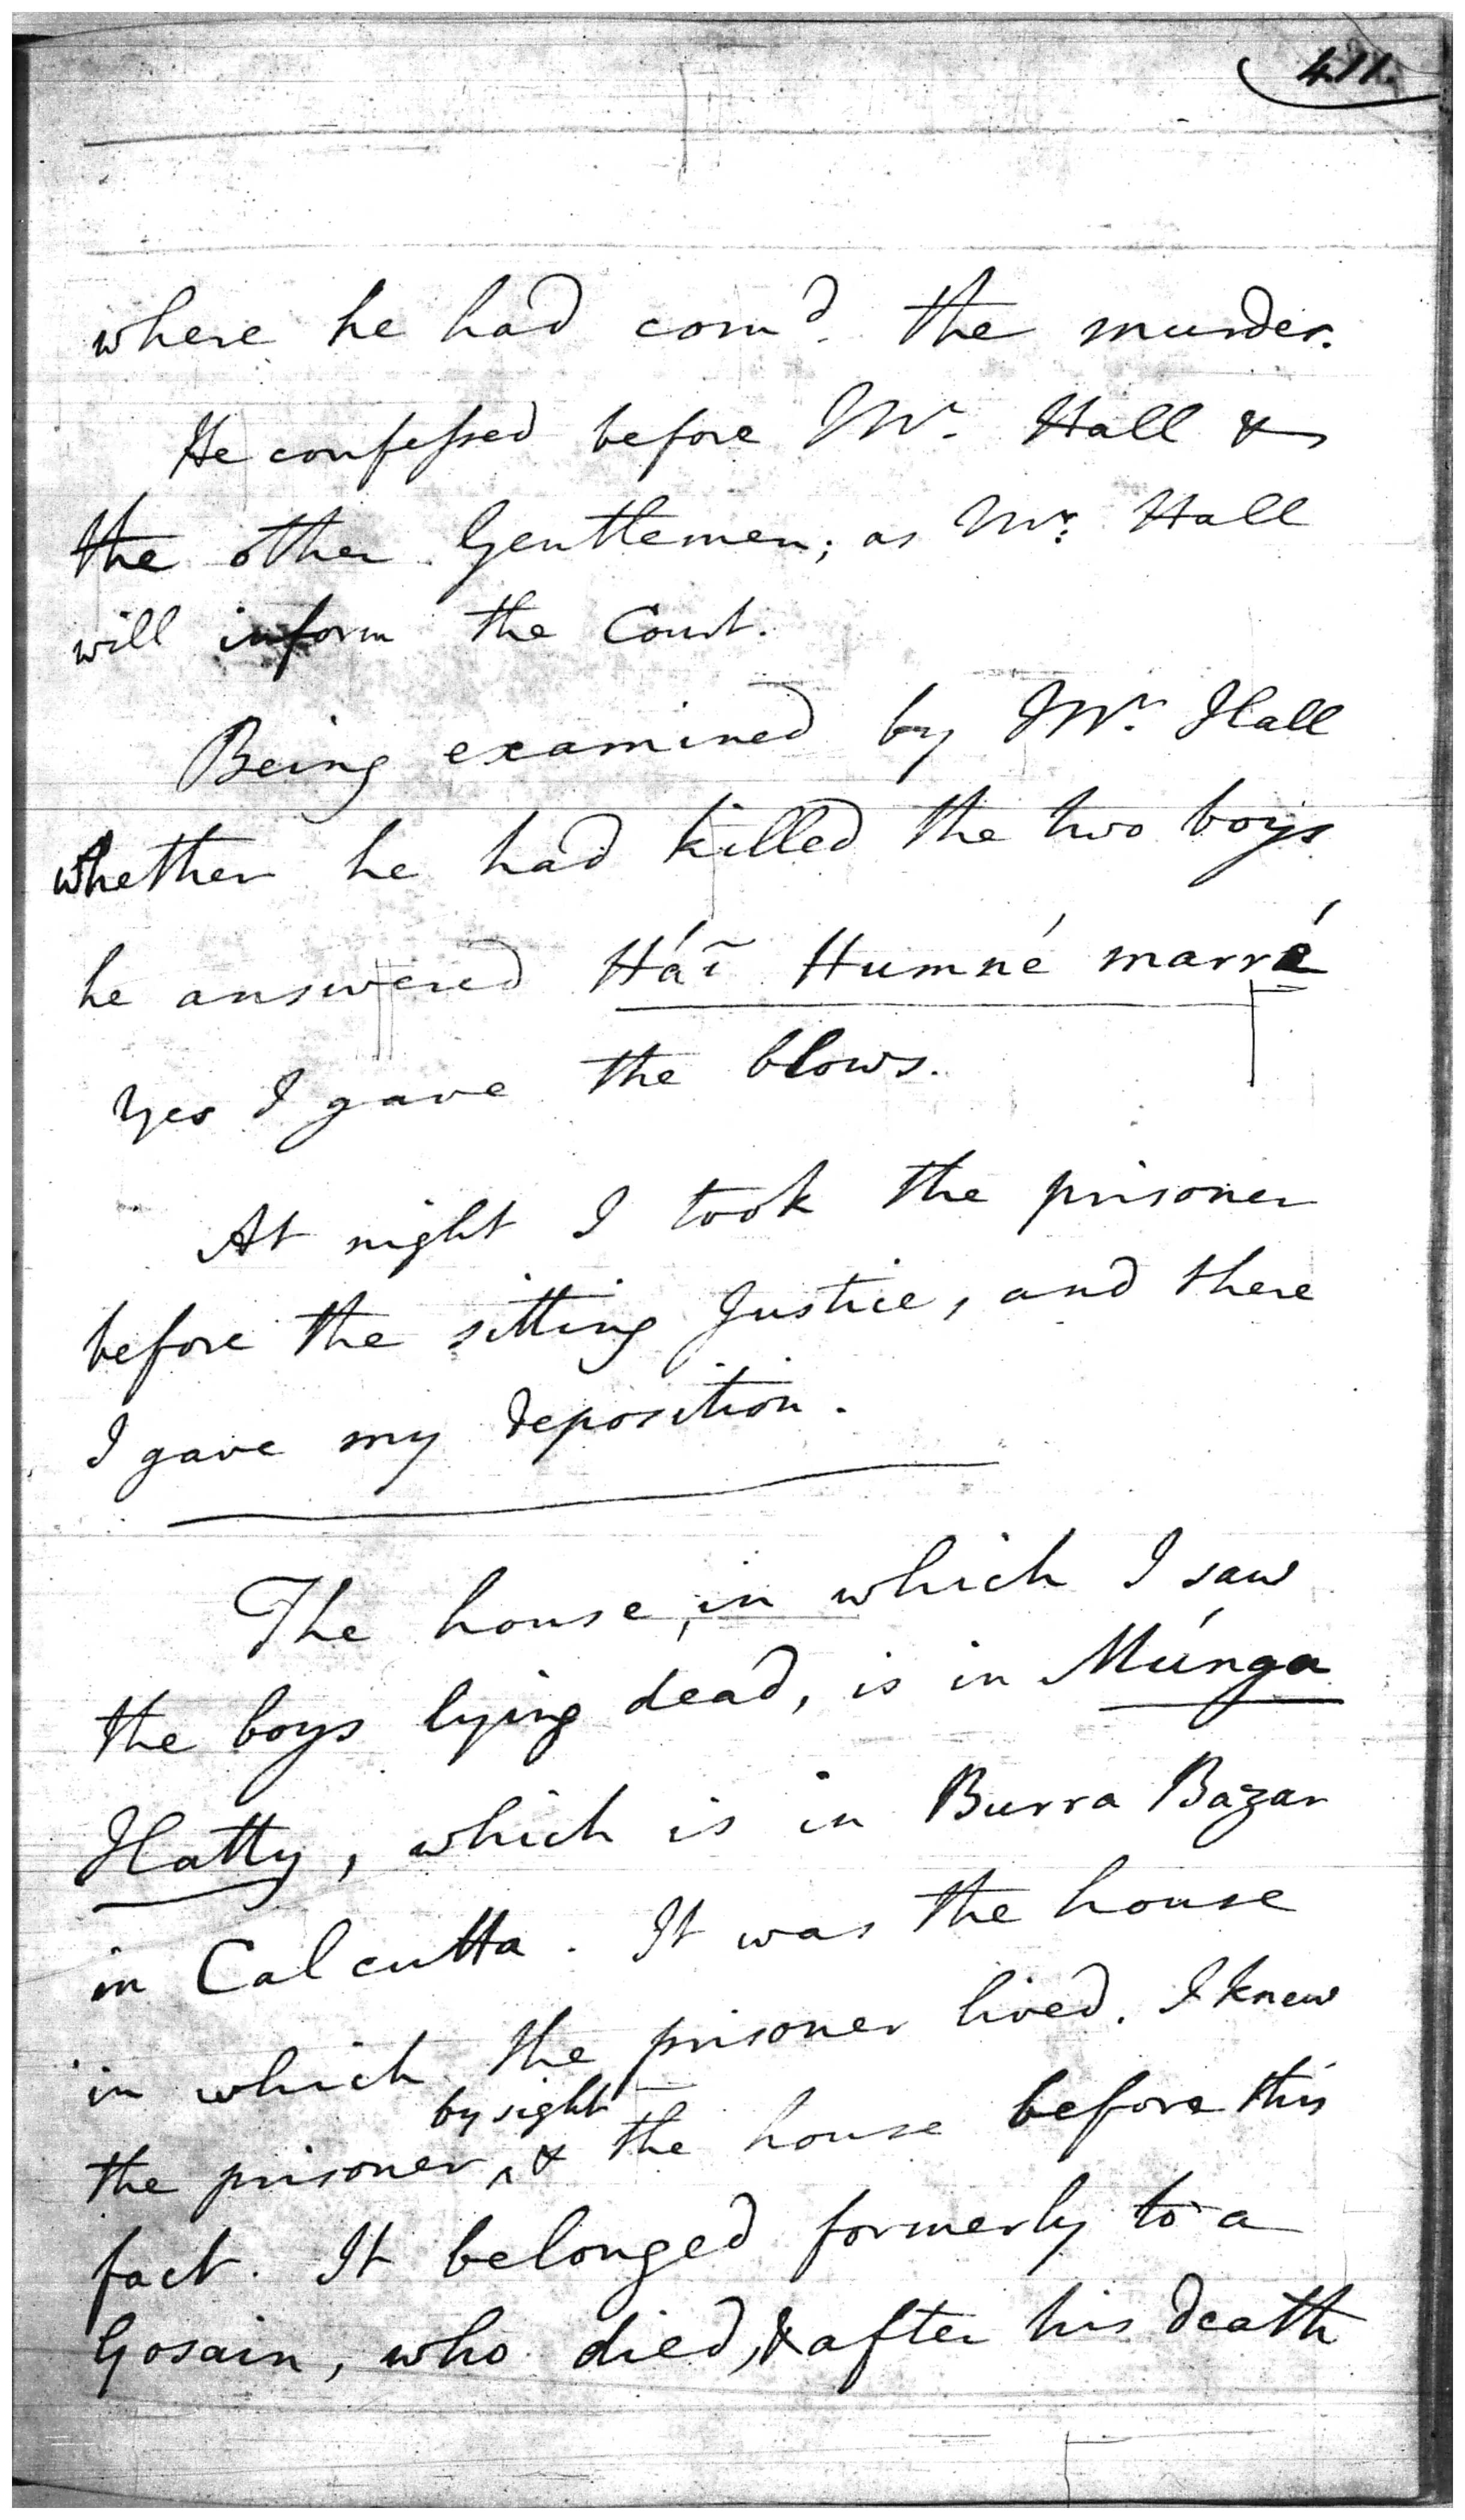 411.
where he had com^d. the murder.
He confessed before M^r. Hall &
the other Gentlemen; as M^r. Hall
will inform the Court.
Being examined by M^r. Hall
whether he had killed the two boys
he answered Háĩ Humné marré
Yes I gave the blows.
At night I took the prisoner
before the sitting Justice, and there
I gave my deposition.
The house, in which I saw
the boys lying dead, is in Múnga
Hatty, which is in Burra Bazar
in Calcutta. It was the house
in which the prisoner lived. I knew
by sight
the prisoner ^ & the house before this
fact. It belonged formerly to a
Gosain, who died, & after his death